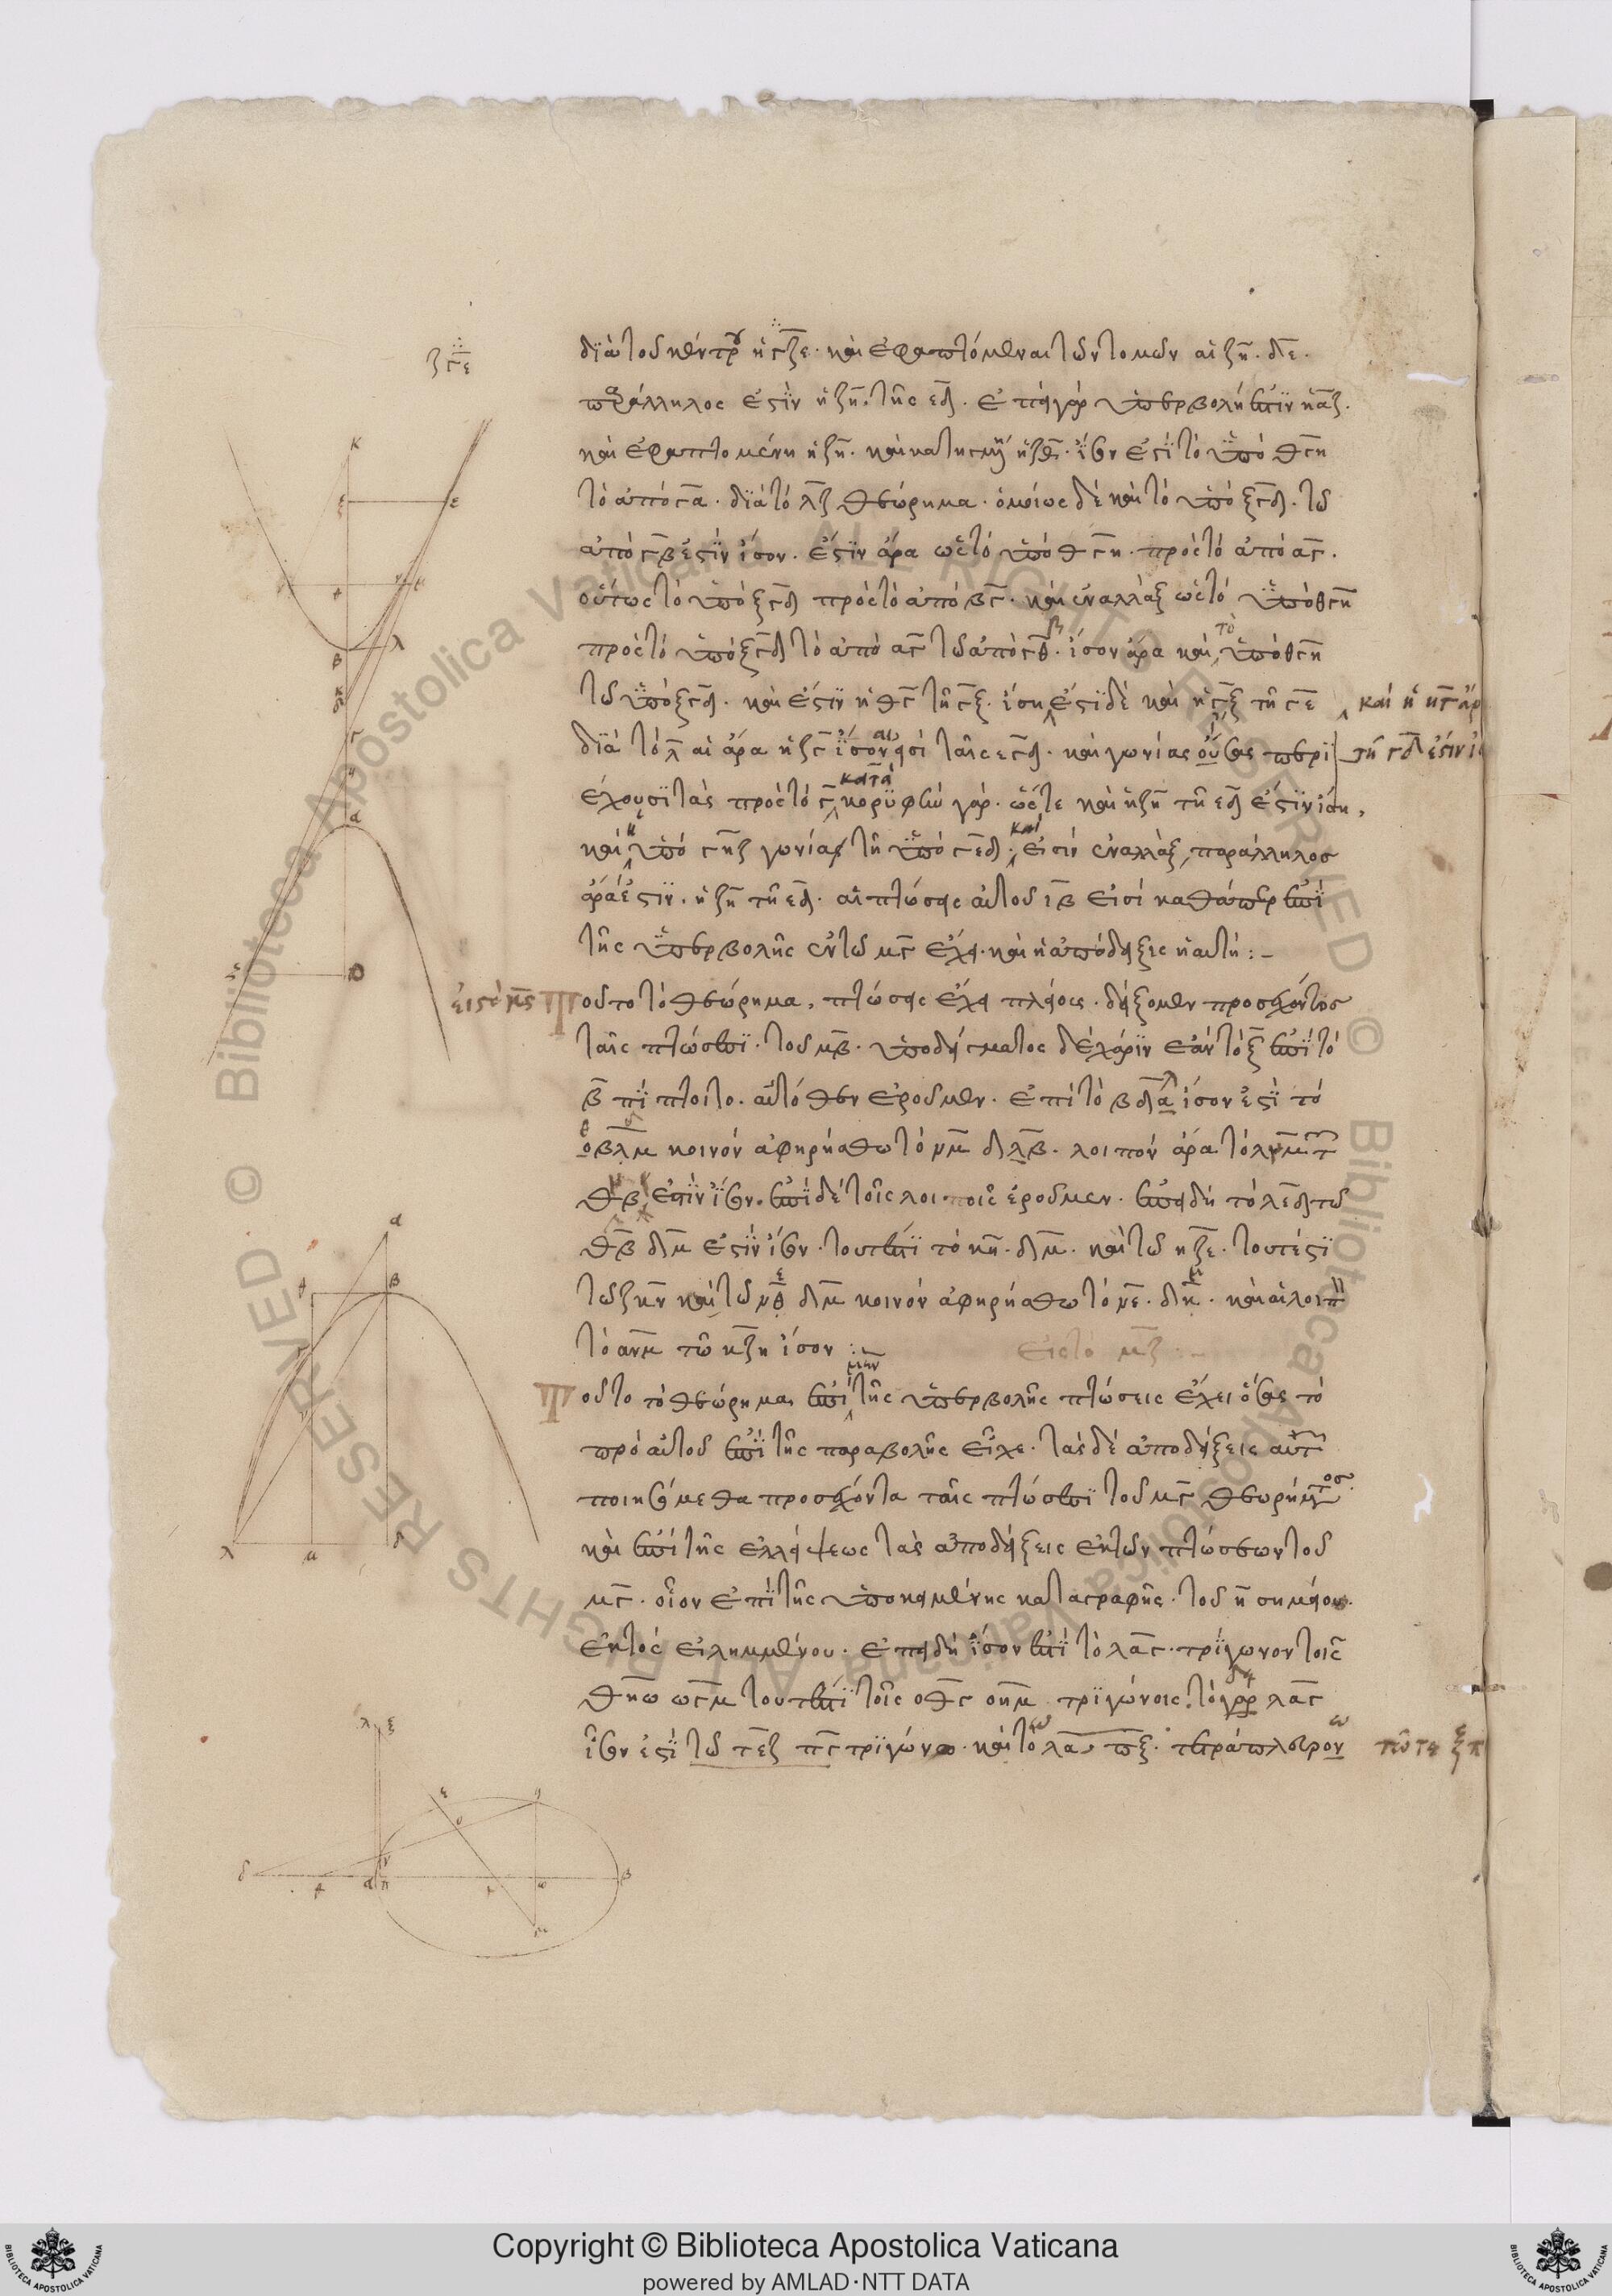 διὰ τοῦ κέντρου ἡ γζε· καὶ ἐφαπτόμεναι τῶν τομῶν αἱ ζη· δε·
παράλληλος ἐστὶν ἡ ζη τῆς εδ· ἐπεὶ γὰρ ὑπερβολή ἐστιν ἡ αζ·
καὶ ἐφαπτομένη ἡ ζη· καὶ κατηγμένη ἡ ζθ· ἴσον ἐστὶ τὸ ὑπὸ θγη
τὸ ἀπὸ γα· διὰ τὸ λζ θεώρημα· ὁμοίως δὲ καὶ τὸ ὑπὸ ξγδ· τῶ
ἀπὸ γβ ἐστὶν ἴσον· ἔστιν ἄρα ὡς τὸ ὑπὸ θγη· πρὸς τὸ ἀπὸ αγ·
οὕτως τὸ ὑπὸ ξγδ πρὸς τὸ ἀπὸ βγ· καὶ ἐναλλὰξ ὡς τὸ ὑπὸ θγη
πρὸς τὸ ὑπὸ ξγδ τὸ ἀπὸ αγ τῶ ἀπὸ γθ· ἴσον ἄρα καὶ τὸ ὑπὸ θγη
τῶ ὑπὸ ξγδ· καὶ ἐστὶν ἡ θγ τῆ γξ· ἴση ἐστὶ δὲ καὶ ἡ γξ τῆ γε καὶ ἡ ηγ ἄρ
διὰ τὸ λ αἱ ἄρα ηζγ ἴσον εἰσὶ ταῖς εγδ· καὶ γωνίας οὔσας περι τῆ γδ ἐστιν ἴ
έχουσι τὰς πρὸς τὸ γ κατὰ κορυφὴν γάρ· ὥστε καὶ ἡ ζη τῆ εδ ἐστὶν ἴση,
καὶ ἡ ὑπὸ γηζ γωνία τῆ ὑπὸ γεδ· καί εἰσιν ἐναλλάξ, παράλληλοσ
ἄρα ἐστὶν· ἡ ζη τῆ εδ· αἱ πτώσεις αὐτοῦ ιβ εἰσὶ καθάπερ ἐπὶ
τῆς ὑπερβολῆς ἐν τῶ μγ ἔχει· καὶ ἡ ἀπόδειξις ἡ αὐτή:-
εἰς τὸ μς Τοῦτο τὸ θεώρημα, πτώσεις ἔχει πλείους· δείξομεν προσέχοντος
ταῖς πτώσεσι· τοῦ μβ· ὑποδείγματος δὲ χάριν ἐὰν τὸ ξ ἐπὶ τὸ
β πίπτοιτο· αὐτόθεν ἐροῦμεν· ἐπὶ τὸ βδλ ἴσον ἐστὶ τὸ
θβδμ κοινὸν ἀφηρήσθω τὸ νμδβ· λοιπὸν ἄρα τὸ λνμ τ
θβ ἐστὶν ἴσον· ἐπὶ δὲ τοῖς λοιποῖς ἐροῦμεν· ἐπειδὴ τὸ λεδ τῶ
θβδμ ἐστὶν ἴσον· τουτέστι τὸ κη· δμ· καὶ τῶ ηζε· τουτέστι
τῶ ζκν καὶ τῶ νθ δμ κοινὸν ἀφηρήσθω τὸ νε· δκ· καὶ αἱ λοιπ
τὸ ανμ τῶ κζη ἴσον :- Εἰς τὸ μζ :-
Τοῦτο τὸ θεώρημα ἐπὶ μὲν τῆς ὑπερβολῆς πτώσεις ἔχει ὅσας τὸ
πρὸ αὐτοῦ ἐπὶ τῆς παραβολῆς εἶχε· τὰς δὲ ἀποδείξεις αὐτ
ποιησόμεθα προσέχοντα ταῖς πτώσεσι τοῦ μγ θεωρήματος·
καὶ ἐπὶ τῆς ἐλλείψεως τὰς ἀποδείξεις ἐκ τῶν πτώσεων τοῦ
μγ· οἷον ἐπὶ τῆς ὑποκειμένης καταγραφῆς· τοῦ η σημείου·
ἐκτὸς εἰλημμένου· ἐπειδὴ ἴσον ἐστὶ τὸ λαγ· τρίγωνον τοῖς
θηω ωγμ τουτέστι τοῖς οθγ οημ τριγώνοις· τὸ γὰρ λαγ
ἴσον ἐστὶ τῶ γεζ πγ τριγώνω· καὶ τὸ λα πξ· τετράπλευρον τῶ τε ξπ